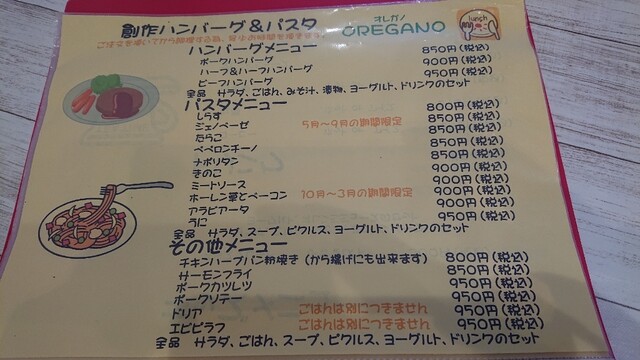 創作ハンバーグ&パスタ オレガノ OREGANO lunch
ご注文を頂いてから調理する為、多少お時間を頂きます。
ハンバーグメニュー
ポークハンバーグ 850円(税込)
ハーフ&ハーフハンバーグ 900円(税込)
ビーフハンバーグ 950円(税込)
全品 サラダ、ごはん、みそ汁、漬物、ヨーグルト、ドリンクのセット
パスタメニュー
しらす 800円(税込)
ジェノベーゼ 5月~9月の期間限定 850円(税込)
たらこ 850円(税込)
ペペロンチーノ 850円(税込)
ナポリタン 850円(税込)
きのこ 900円(税込)
ミートソース 900円(税込)
ホーレン草とベーコン 10月~3月の期間限定 900円(税込)
アラビアータ 900円(税込)
うに 950円(税込)
全品 サラダ、スープ、ピクルス、ヨーグルト、ドリンクのセット
その他メニュー
チキンハーブパン粉焼き (から揚げにも出来ます) 800円(税込)
サーモンフライ 850円(税込)
ポークカツレツ 950円(税込)
ポークソテー 950円(税込)
ドリア ごはんは別につきません 950円(税込)
エビピラフ ごはんは別につきません 950円(税込)
全品 サラダ、ごはん、スープ、ピクルス、ヨーグルト、ドリンクのセット